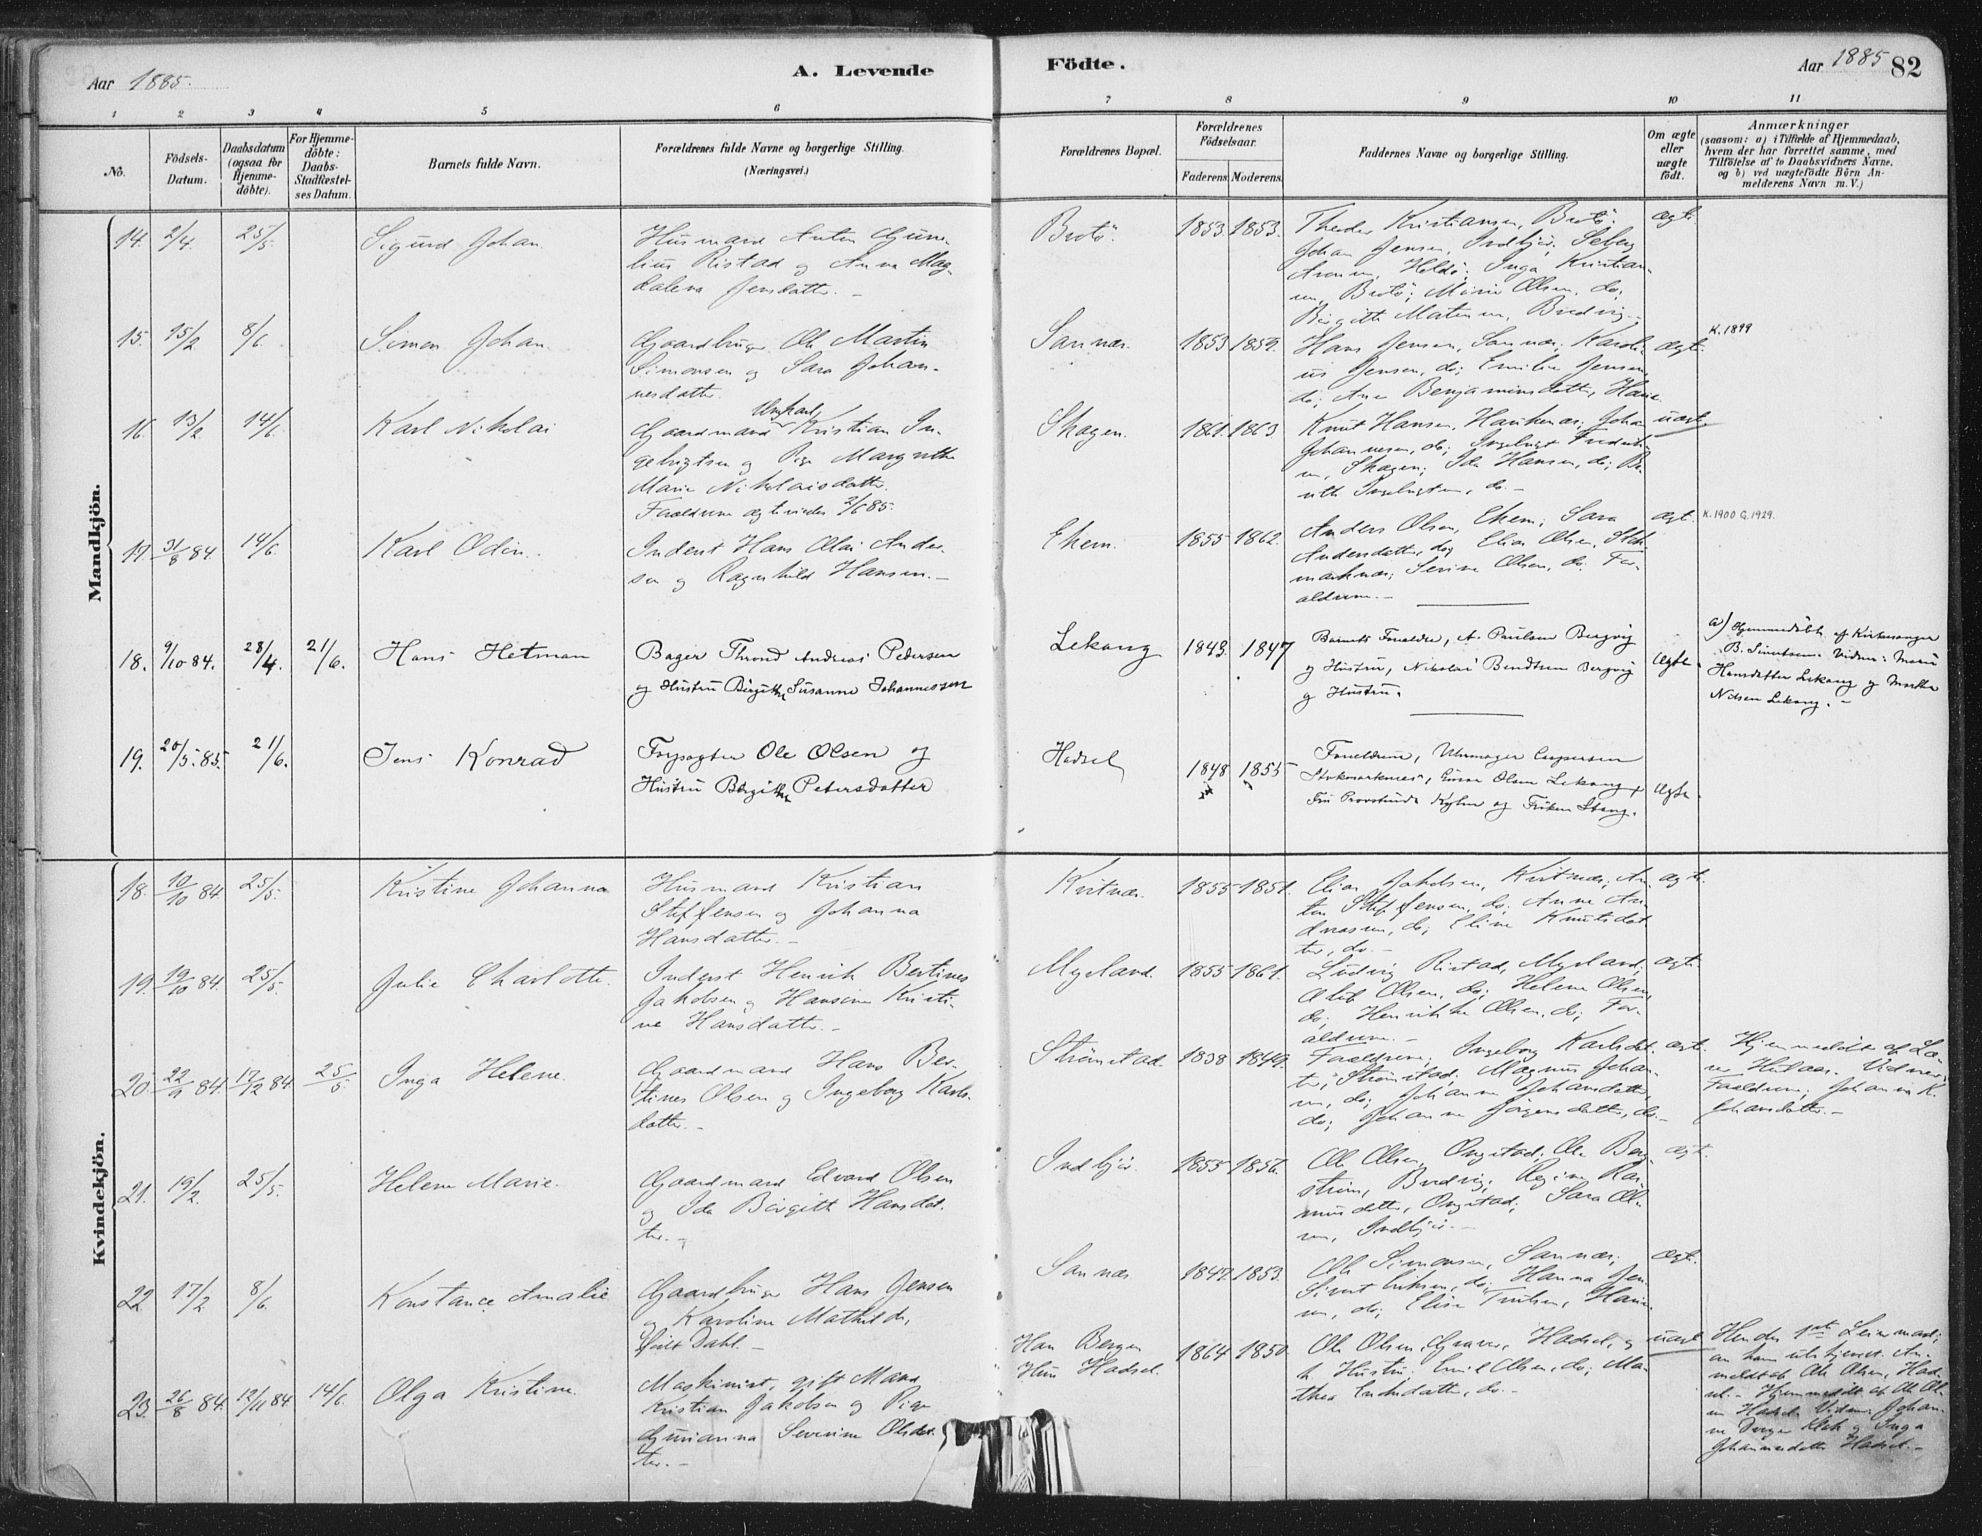 Aar 1885.
A. Levende
Födte.
Aar 1885
82
1 2 3 4 5 6 7 8 9 10 11
No.
Födsels-
Datum.
Daabsdatum
(ogsaa för
Hjemme-
döbte).
For Hjemme-
döbte:
Daabs-
Stadfæstel-
ses Datum.
Barnets fulde Navn.
Forældrenes fulde Navne og borgerlige Stilling.
(Næringsvei.)
Forældrenes Bopæl.
Forældrenes
Födselsaar.
Faderens. Moderens.
Faddernes Navne og borgerlige Stilling.
Om ægte
eller
uægte
födt.
Anmærkninger
(saasom: a) i Tilfælde af Hjemmedaab,
hvem der har forrettet samme, med
Tilföielse af to Daabsvidners Navne,
og b) ved uægtefödte Börn An-
melderens Navn m. V.)
Mandkjön.
14. 2/4. 25/5 Sigurd Johan
Husmand Anton
Ristad og Anna Mag-
dalena Jensdatter. -
Brotö. 1853. 1853.
Kristiansen, Brotö.
Johan Jensen, Indbjör,
Holdö; Inga Kristian-
sen, Brotö; Marie Olsen, do;
Birgitte Bredvig. -
ægte
15. 15/2 8/6 Simon Johan
Gaardbruger Ole Martin
Simonsen og Sara Johan-
nesdatter.
Sannæs. 1853 1859.
Hans Jensen, Sannæs,
Jensen, do; Emilie Jensen,
do; Ane Benjaminsdatter,
ægte.
K. 1899
16. 13/2 14/6. Karl Nikolai
Ungkarl,
Gaardmand Kristian In-
gebrigtsen og Pige Margrethe
Marie Nikolaisdatter.
Forældrene 2/6 85.
Skagen. 1861. 1863
Knut Hansen, Haukenæs, Johan
Johannesen, do; Ingebrigt
Skagen; Ida Hansen, do;
Ingebrigtsen, do. -
uægte
17. 31/8 84 14/6 Karl Odin.
Inderst Hans Olai Ander-
sen og Ragnhild Hansen. -
Ekem. 1855 1862.
Anders Olsen, Ekem; Sara
Andersdatter, do; Elias Olsen,
Olsen, do. For-
ældrene. -
ægte.
K. 1900 G. 1929.
18. 9/10 84. 28/4. 21/6. Hans Hetman
Bager Thrond Andreas Petersen
og Hustru Birgitha Susanne Johannessen
Lekang 1843. 1847
Barnets Forældre, A. Paulsen Bergvig
og Hustru, Nikolai Bendtsen Bergvig
og Hustru.
Ægte
a) Hjemmedöbt af Kirkesanger
B. Vidner: Marie
Hansdatter Lekang og Martha
Nilsen Lekang. -
19. 20/5. 85. 21/6. Jens Konrad
Fyrvogter Ole Olsen og
Hustru Birgitha Petersdatter
Hadsel 1848 1855
Forældrene, Uhrmager Caspersen
Stokmarknes, Olsen Lekang,
Fru Provstinde og Fröken Stang.
Ægte
Kvindekjön.
18. 10/10 84. 25/5. Kristine Johanna
Husmand Kristian
Steffensen og Johanna
Hansdatter. -
Kvitnæs. 1855 1851.
Elias Jakobsen, Kvitnæs; An-
ton Steffensen, do; Anne An-
dreasen, do; Eline Knutsdat-
ter, do. -
ægte.
19. 19/10 84. 25/5. Julie Charlotte.
Inderst Henrik Bertines
Jakobsen og Hansine Kristi-
ne Hansdatter. -
Myrland. 1855 1861.
Ludvig Ristad, Myrland;
Olsen, do; Helene Olsen,
do; Henrikke Olsen, do; For-
ældrene. -
ægte.
20. 22/9 84. 17/2 84 25/5 Inga Helene.
Gaardmand Hans Ber-
tines Olsen og Ingeborg Karls-
datter. -
Strömstad. 1838 1849.
Forældrene; Ingeborg Karlsdat-
ter, Strömstad; Magnus Johan-
sen, do; Johanna Johansdatter,
do; Johanna Jörgensdatter, do. -
ægte.
Hjemmedöbt af Læ-
rer Vidner:
Forældrene; Johanna K.
Johansdatter. -
21. 19/2. 25/5. Helene Marie.
Gaardmand Edvard Olsen
og Ida Birgitte Hansdat-
ter. -
Indbjör. 1855 1856.
Ole Olsen, Ongstad; Ole Berg-
ström, Bredvig; Regine Ras-
musdatter, Ongstad; Sara Ol-
sen, Indbjör. -
ægte.
22 17/2 8/6 Konstance Amalie
Gaardbruger Hans Jensen
og Karoline Mathilde,
födt Dahl. -
Sannæs 1847. 1853.
Ole Simonsen, Sannæs;
Sivert Eriksen, do; Hanna Jen-
sen, do;
ægte.
23. 26/8 84. 12/11 84. 14/6 Olga Kristine.
Maskinist, gift Mand
Kristian Jakobsen og Pige
Gurianna Severine Olsdat-
ter. -
Han Bergen
Hun Hadsel. 1864 1850.
Ole Olsen, Hadsel, og
h. Hustru; Emil Olsen, do; Ma-
thea do. -
uægte
Hendes 1ste Leiermaal;
An-
meldt af Ole Olsen, Had-
sel. - Hjemmedöbt af Ole Ol-
sen Hadsel. Vidner: Johan-
og Inga
Johannesdatter Hadsel. -